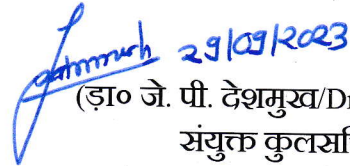 29/09/2023
(ड़ा० जे. पी. देशमुख/D
संयुक्त कुलसचि